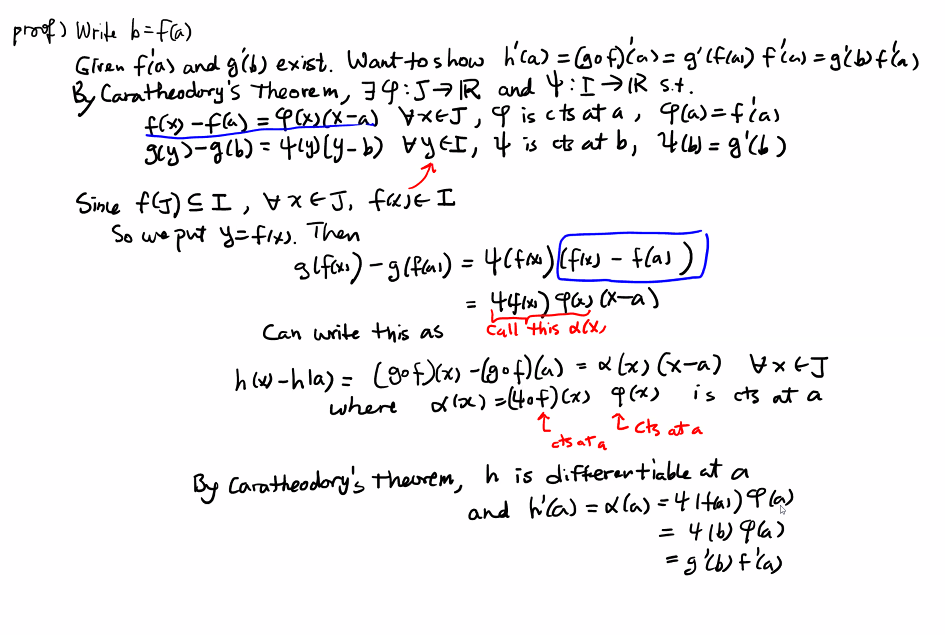 proof) Write b=f(a)
Given f'(a) and g'(b) exist. Want to show h'(a) = (g∘f)'(a) = g'(f(a)) f'(a) = g'(b) f'(a)
By Caratheodory's Theorem, ∃ φ : J → ℝ and ψ : I → ℝ s.t.
f(x) - f(a) = φ(x)(x-a) ∀x∈J, φ is cts at a, φ(a) = f'(a)
g(y) - g(b) = ψ(y)(y-b) ∀y∈I, ψ is cts at b, ψ(b) = g'(b)
Since f(J) ⊆ I, ∀x∈J, f(x)∈I
So we put y=f(x). Then
g(f(x)) - g(f(a)) = ψ(f(x)) (f(x) - f(a))
= ψ(f(x)) φ(x) (x-a)
Can write this as
call this α(x)
h(x)-h(a) = (g∘f)(x) - (g∘f)(a) = α(x)(x-a) ∀x∈J
where α(x) = (ψ∘f)(x) φ(x) is cts at a
↑ cts at a ↑ cts at a
By Caratheodory's theorem, h is differentiable at a
and h'(a) = α(a) = ψ(f(a)) φ(a)
= ψ(b) φ(a)
= g'(b) f'(a)